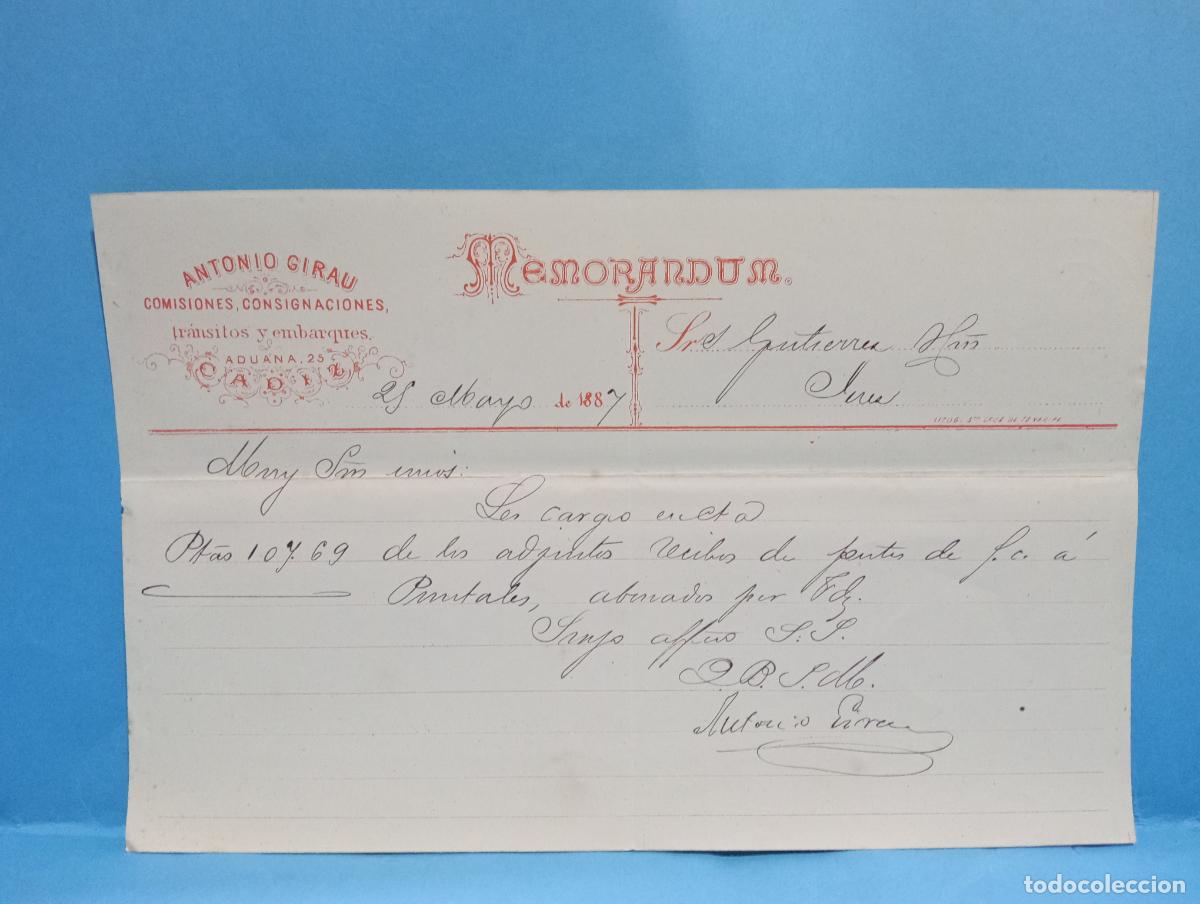 ANTONIO GIRAU
COMISIONES, CONSIGNACIONES,
tránsitos y embarques.
ADUANA, 25
CADIZ
MEMORANDUM.
25 Mayo de 1887
Srs Gutierrez Hños
Jerez
LITOG.
Muy Sres mios:
Les cargo en cta
Ptas 107.69 de los adjuntos recibos de portes de f.c. á
Puntales, abonados por Vdz.
Suyo affmo S.S.
Q.B.S.M.
Antonio Girau
todocoleccion